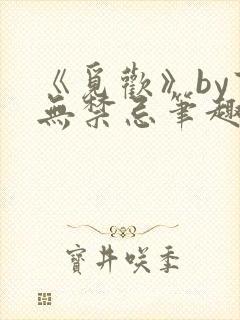 《覓歡》by
無禁忌筆趣
寶井咲季